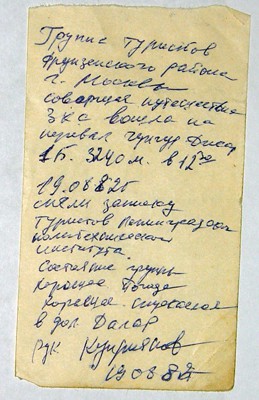 Группа туристов
Фрунзенского района
г. Москвы
совершая путешествие
3 кс взошла на
перевал
1Б. 3240 м. в 12 00
19.08.82г
сняли записку
туристов Ленинградского
политехнического
института.
Состояние группы
хорошее Погода
хорошая. Спускаемся
в дол. Далар
рук.
19.08.82